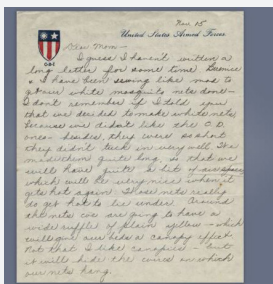 Nov 15
United States Armed Forces
C-B-I
Dear Mom -
I guess I haven't written a
long letter for some time. Bernice
& I have been sewing like mad to
get our white mosquito nets done -
I don't remember if I told you
that we decided to make white nets
because we didn't like the O.D.
ones - besides, they were so short
they didn't tuck in very well. I've
made them quite long, so that we
will have quite a bit of air space
which will be very nice when it
gets hot again. Those nets really
so get hot to lie under. Around
the nets we are going to have a
wide ruffle of plain yellow - which
will give our beds a canopy effect.
Not that I like canopies - but
it will hide the wires on which
our nets hang.